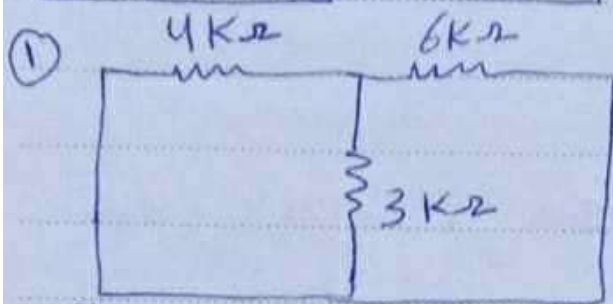 ①
4KΩ 6KΩ
3KΩ